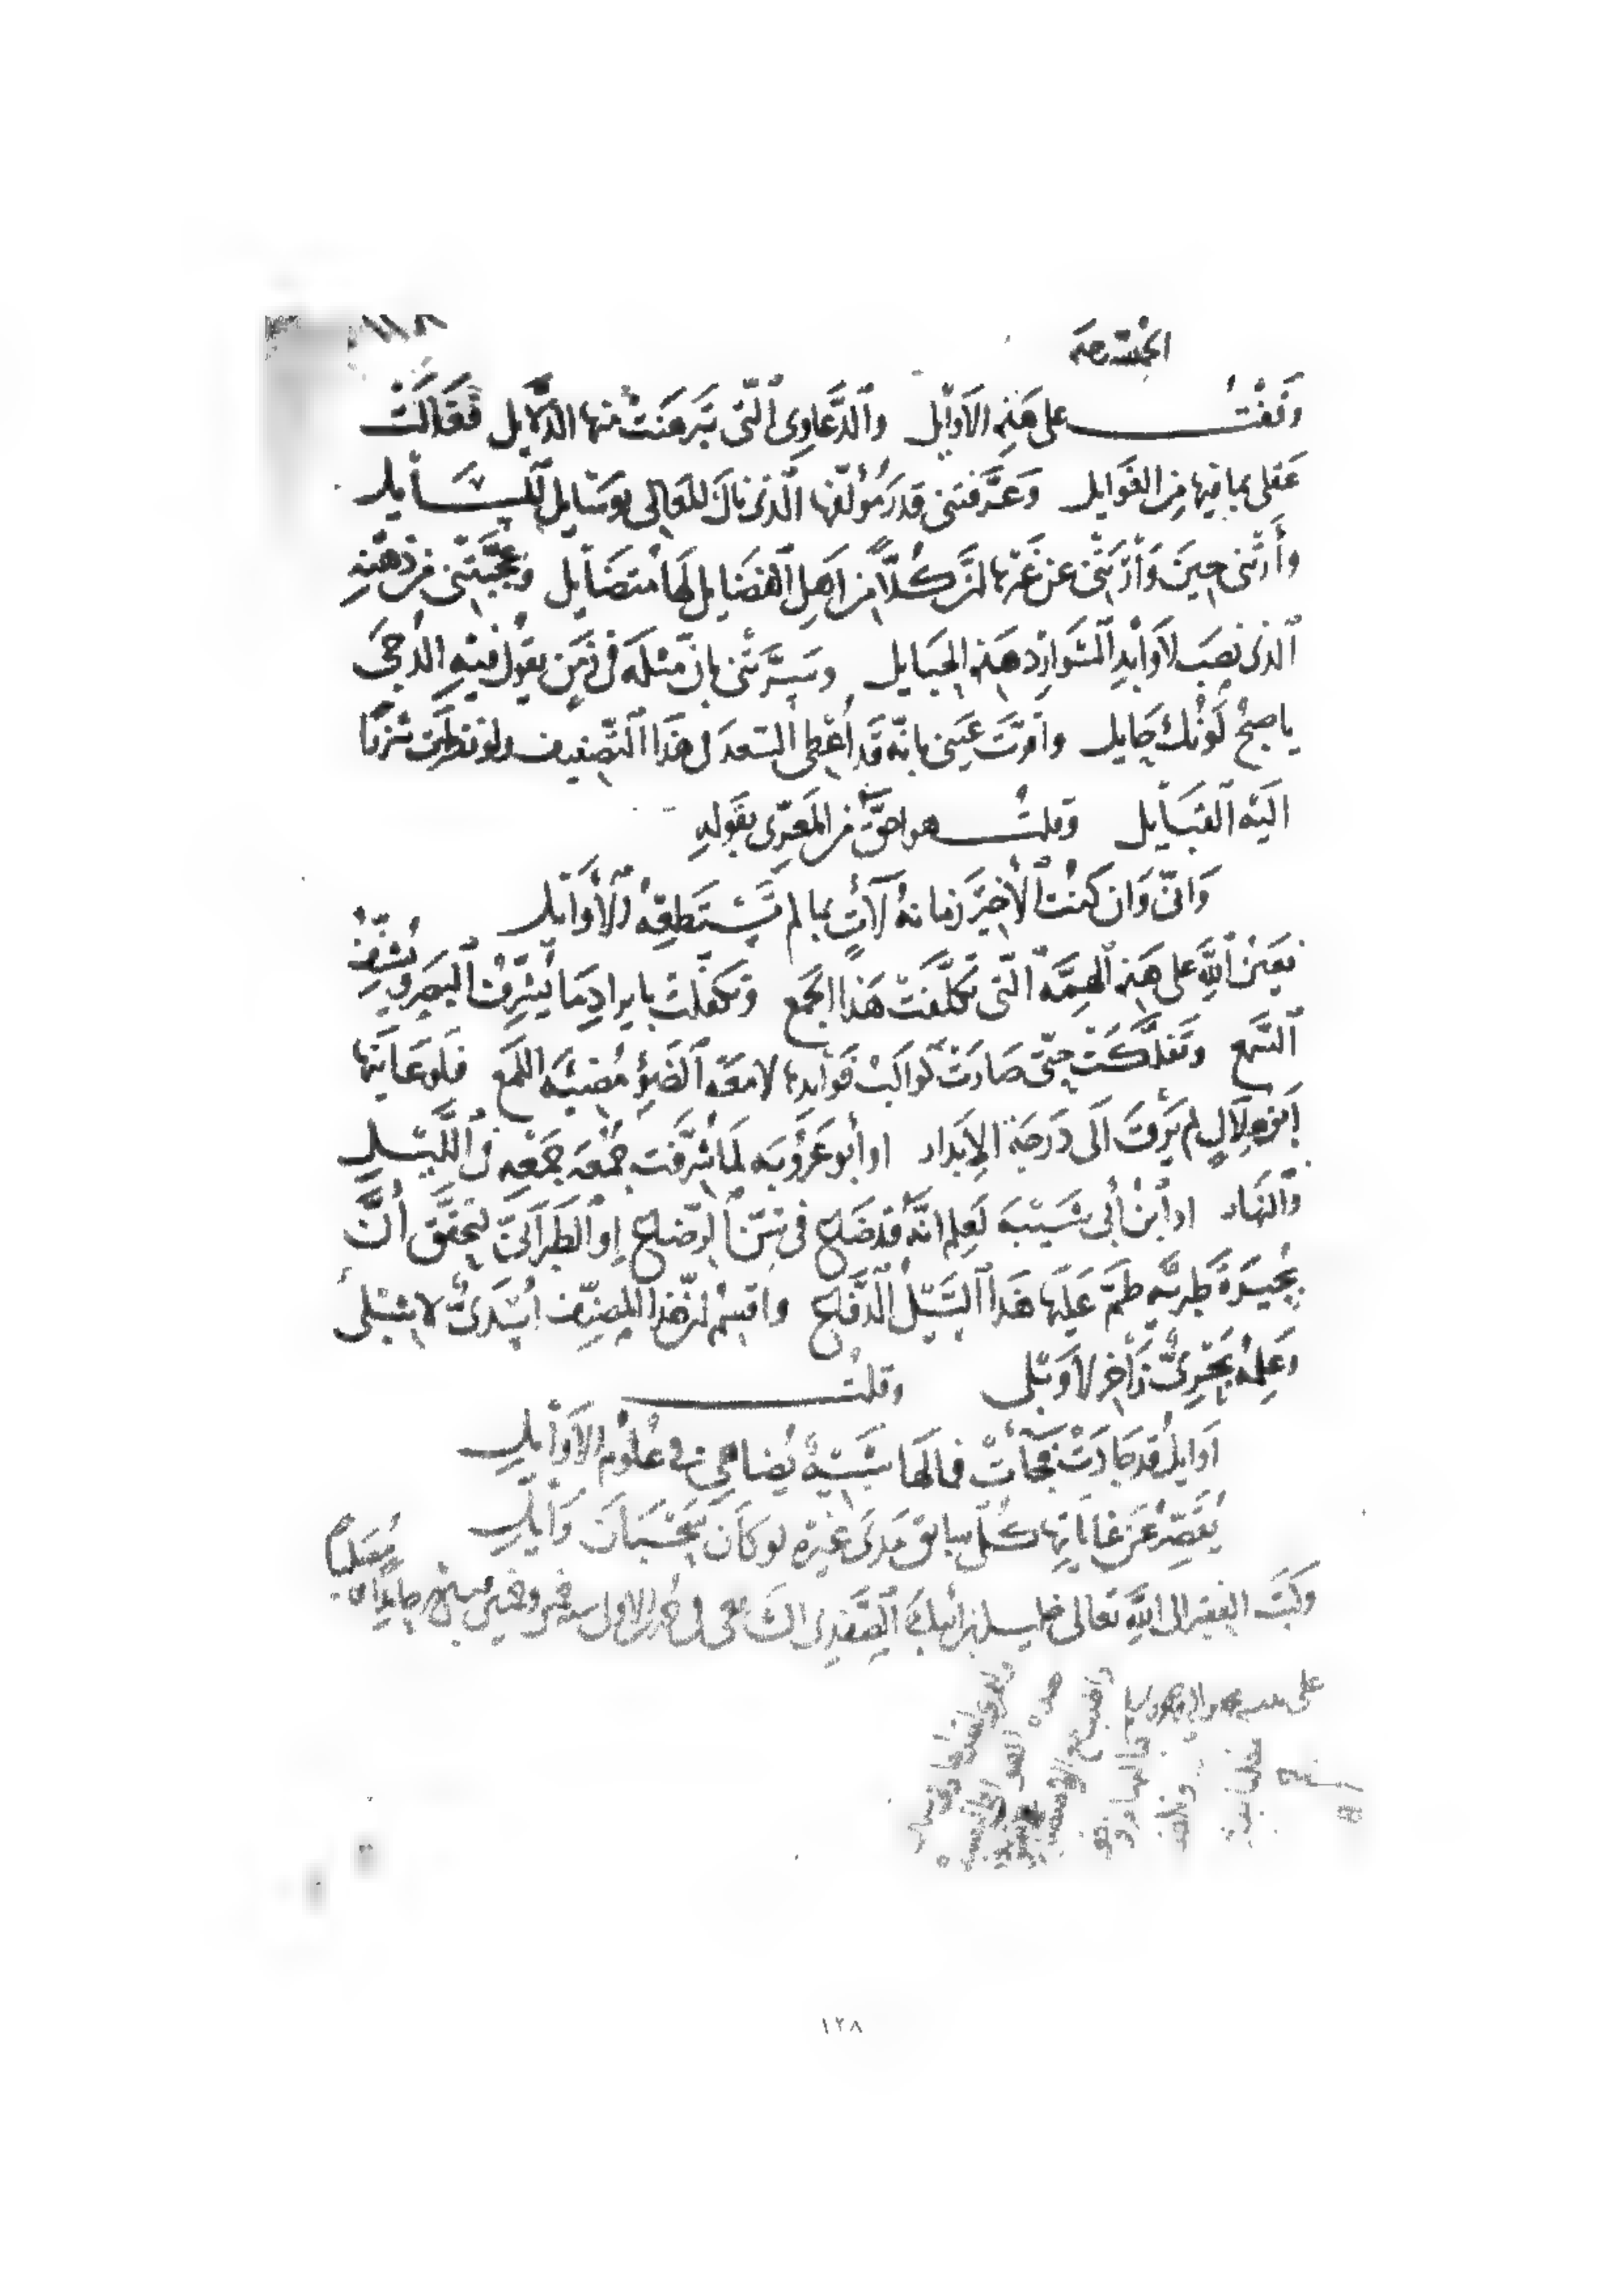 الحمد لله
وقفت على هذه الاوايل والدعاوى التى تبرهنت منها الدلايل فقالت
عقلى بما فيها من الفوايل وعرفتنى قدر مؤلفها الذى نال للمعالى بوسايل المسايل
وأرتنى حين وأرتنى عن غرها لمن كلا من اهل الفضايل لها متضايل وعجبتنى من ذهنه
الذى نصب لاوابد الشوارد هذه الحبايل وسرتنى بان مثله فى زمن يقول فيه الدجى
يا صبح لونك حايل واقرت عينى بانه قد اعطى السعد فى هذا التصنيف ولو نظرت شزرا
اليه القبايل وقلت هو احق من المعرى بقوله
وانى وان كنت الأخير زمانه لآت بما لم تستطعه الأوايل
فعين الله على هذه الهمة التى تكلفت هذا الجمع وتكفلت بايراد ما يشرف البصر ويشنف
السمع وتفلكت حتى صارت كواكب فوايدها لامعة الضوء مضيئه اللمع فلو عاينها
ابن هلال لم يرق الى درجة الابدار او أبو عروبه لما شرفت جمعه جمعه فى الليل
والنهار او ابن أبى شيبة لعلم انه قد ضاع فى سن الرضاع او الطبرانى لتحقق أن
بحيرة طبريه طم عليها هذا السيل الدفاع واقسم ان هذا المصنف اسدى لا شبلى
وعلمه بحرى زاخر لا وبلى وقلت
اوايل قد جادت فجاءت فما لها شبيه يضاهى فى علوم الاوايل
يقصر عن غاياتها كل سابق مدى غيره لو كان سحبان وايل
وكتب الفقير الى الله تعالى خليل بن أيبك الصفدى الشافعى فى الاول سنه خمس وخمسين وسبع حامدا
مصليا
١٢٨